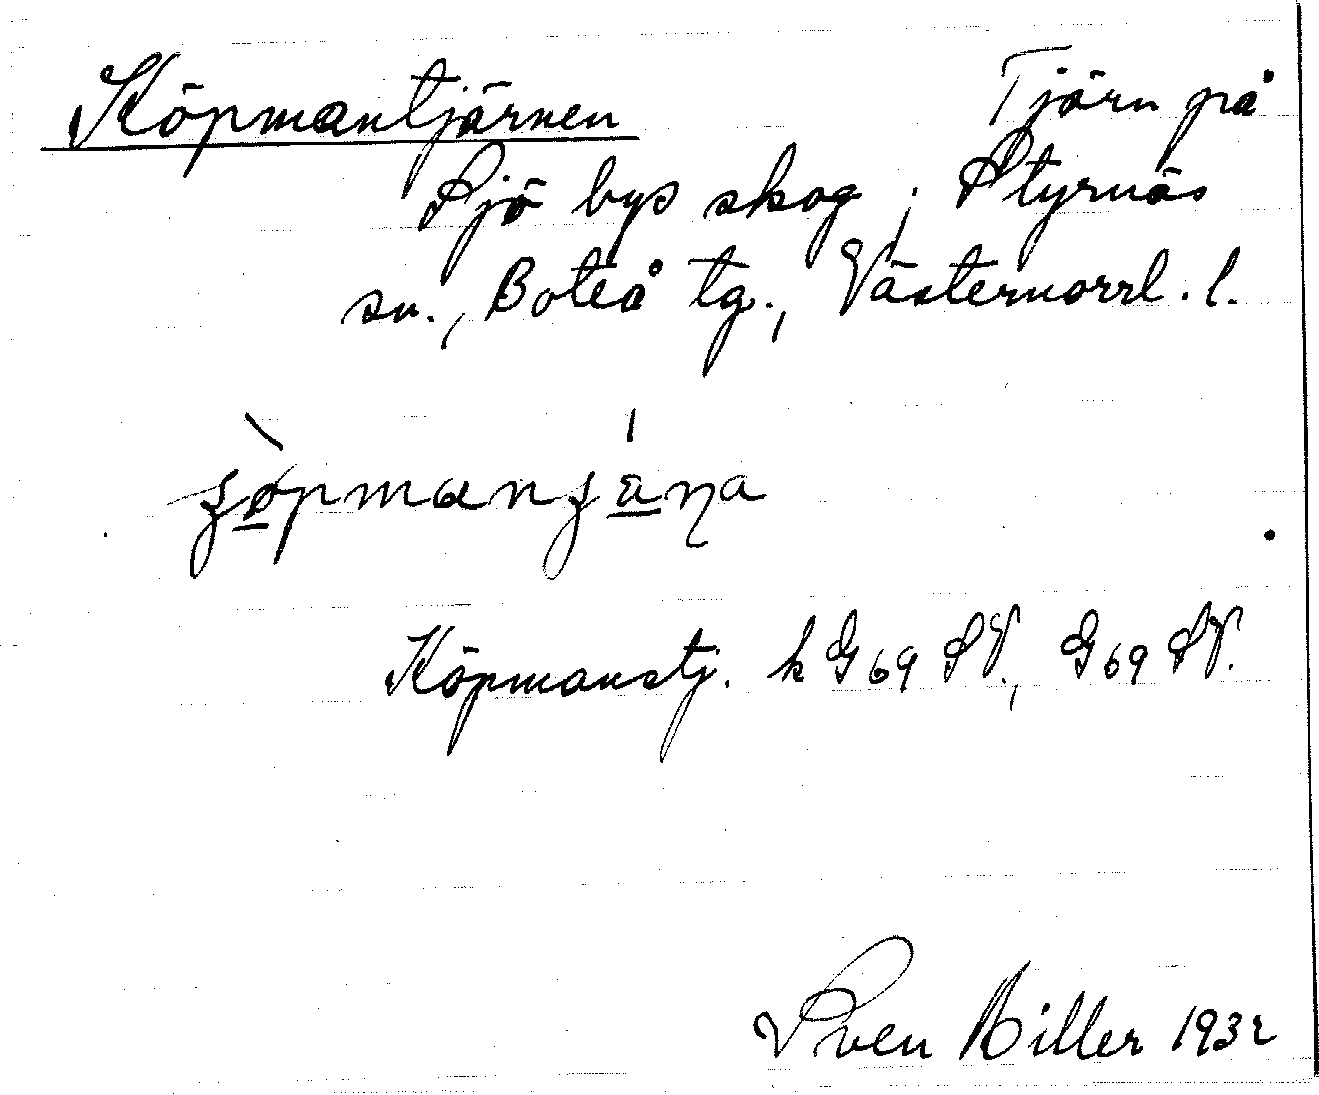 Köpmantjärnen Tjärn på
Sjö bys skog, Styrnäs
sn., Boteå tg., Västernorrl. l.
Köpmanstj. k G69 SV., G69 SV.
Sven Biller 1932